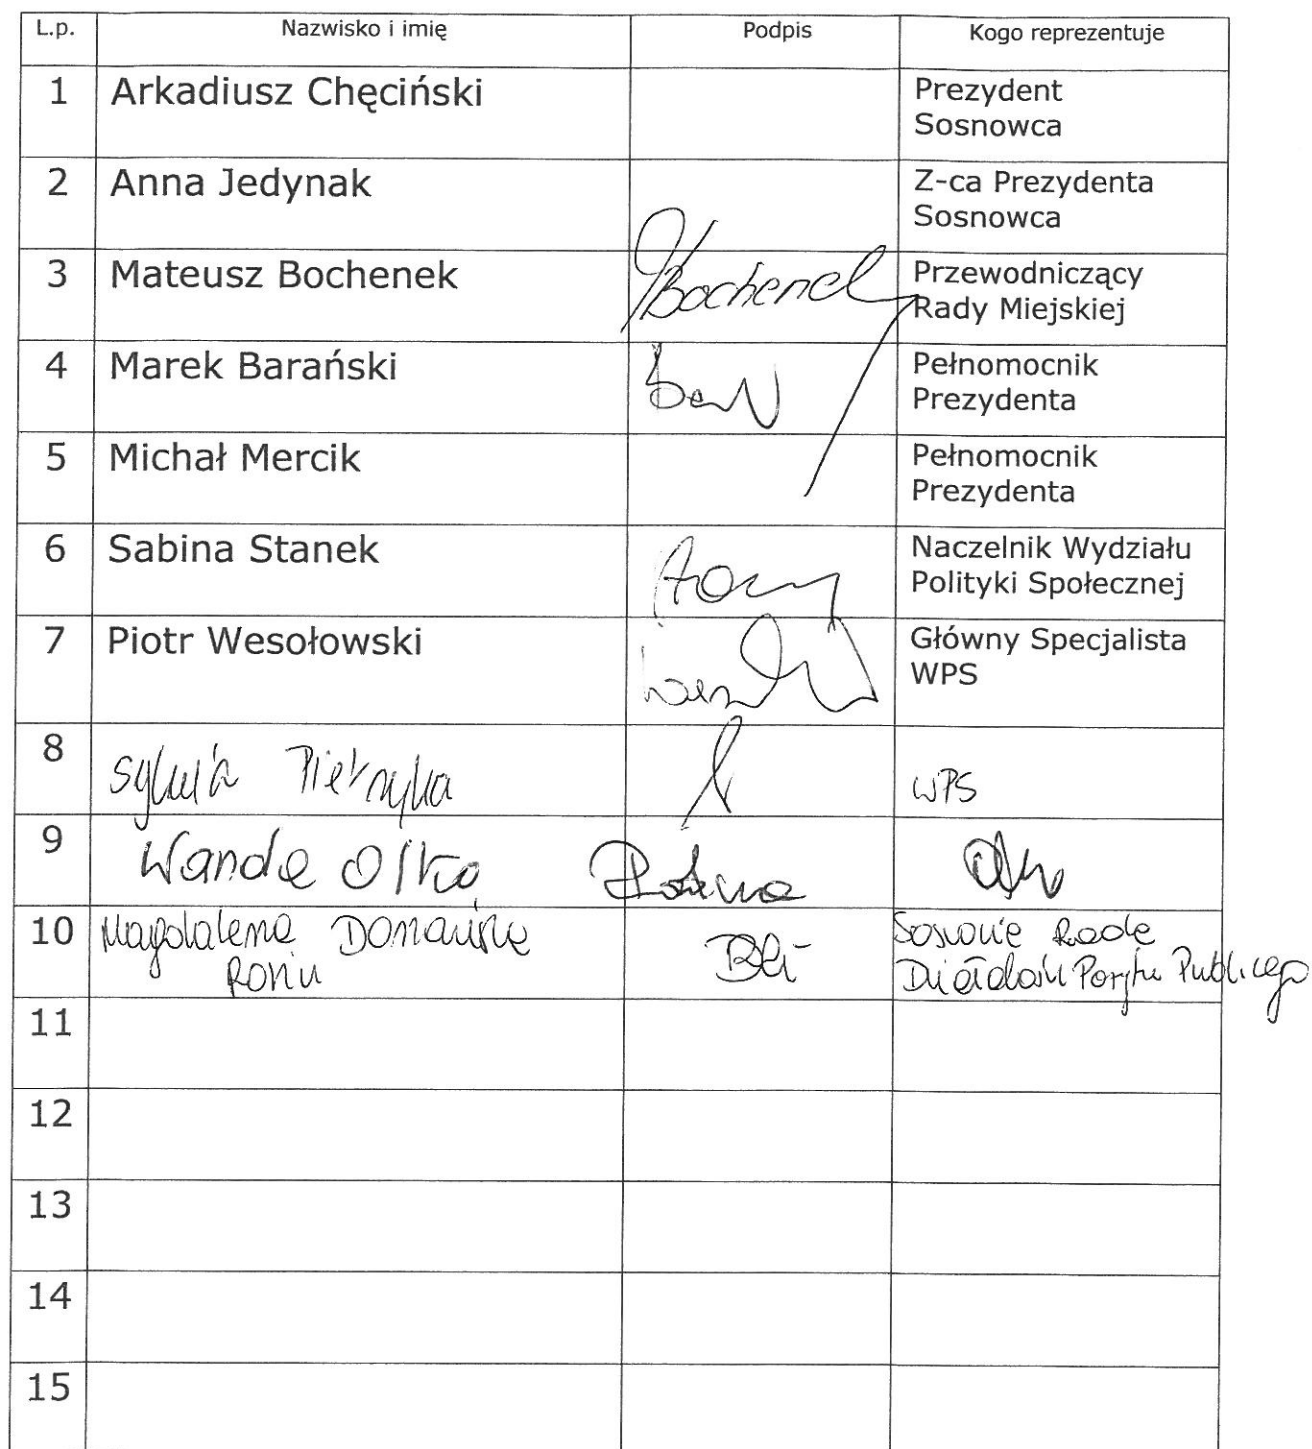 L.p. Nazwisko i imię Podpis Kogo reprezentuje
1 Arkadiusz Chęciński Prezydent
Sosnowca
2 Anna Jedynak Z-ca Prezydenta
Sosnowca
3 Mateusz Bochenek Bochenek Przewodniczący
Rady Miejskiej
4 Marek Barański Pełnomocnik
Prezydenta
5 Michał Mercik Pełnomocnik
Prezydenta
6 Sabina Stanek Naczelnik Wydziału
Polityki Społecznej
7 Piotr Wesołowski Główny Specjalista
WPS
8 Sylwia Pietrzyka WPS
9 Wanda
10 Magdalena Domańska
11
12
13
14
15